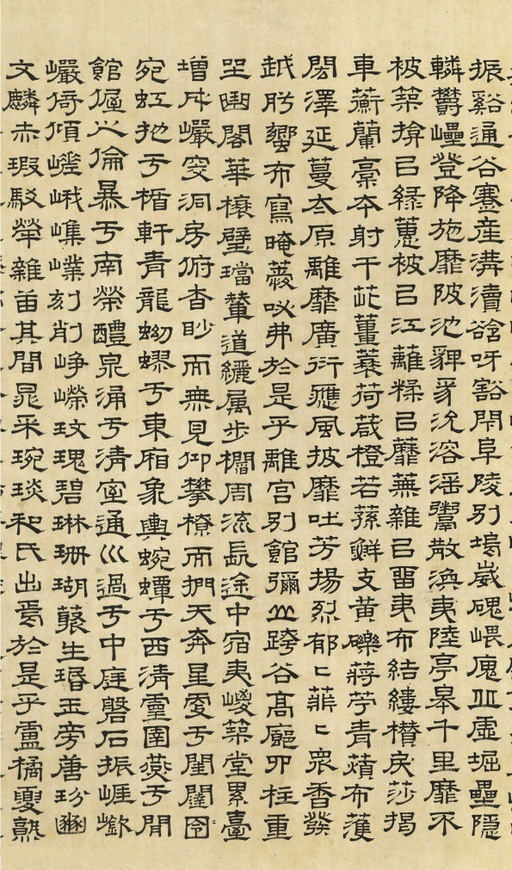 振谿通谷蹇産溝瀆谽呀豁閕阜陵別塢崴磈嵔廆丘虛堀壘隱
轔欝㠥登降施靡陂池貏豸沇溶滛鬻散渙夷陸亭皋千里靡不
被築揜㠯綠蕙被㠯江蘺糅㠯蘼蕪雜㠯畱夷布結縷欑戾莎揭
車蘅蘭稾本射干茈薑蘘荷葴橙若蓀鮮支黃礫蔣芧青薠布濩
閎澤延蔓太原離靡廣衍應風披靡吐芳揚烈郁〻菲〻衆香發
越肸蠁布寫晻薆咇茀於是乎離宮別館彌山跨谷高廊四柱重
坐曲閣華榱璧璫輦道纚屬步欄周流長途中宿夷嵏築堂累臺
增成巖窔洞房俯杳眇而無見仰攀橑而捫天奔星更于閨闥
宛虹扡于楯軒青龍蚴蟉于東廂象輿蜿蟫于西清靈圄燕于閒
館偓之倫暴于南榮醴泉涌于清室通川過于中庭磐石振崖嶔
巖倚傾嵯峨嶕嶫刻削崢嶸玫瑰碧琳珊瑚叢生瑉玉旁唐玢豳
文麟赤瑕駁犖雜臿其間晁采琬琰和氏出焉於是乎盧橘夏熟